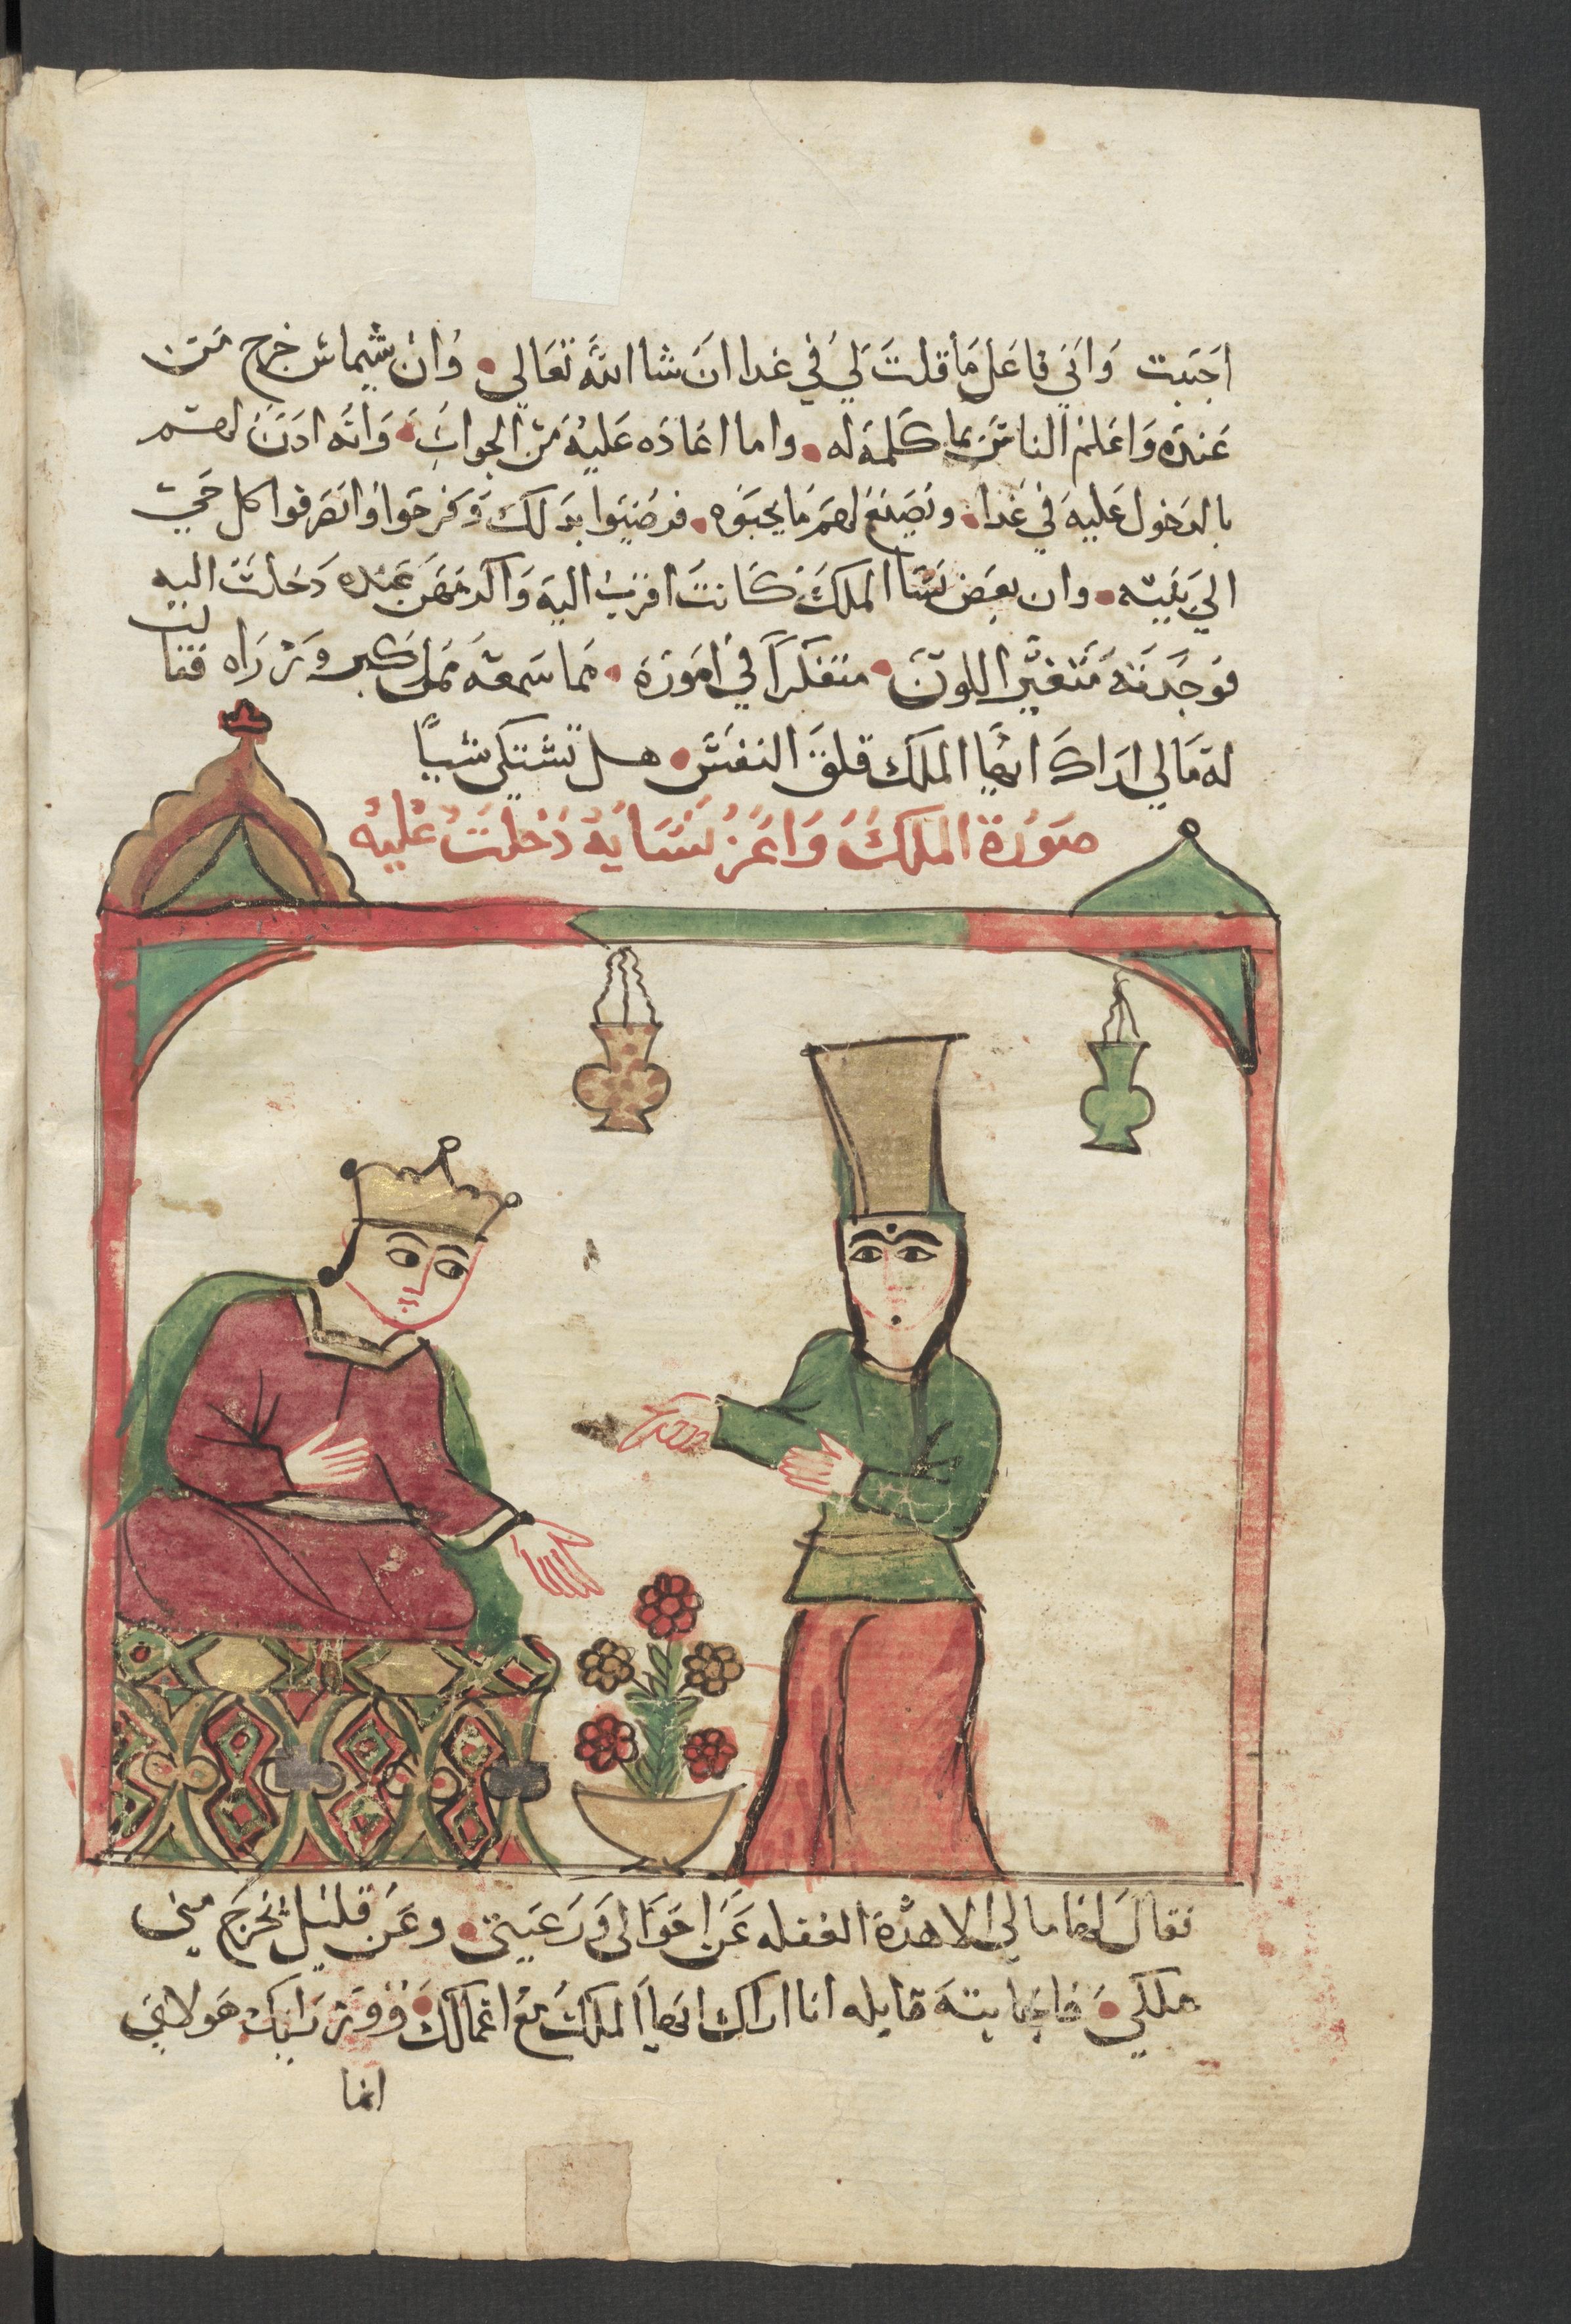 اجبت واني فاعل ما قلت لي في غدا ان شا الله تعالي • وان شيماس خرج من
عنده واعلم الناس بما كلمه له • واما اعاده عليه من الجواب • وانه ادن لهم
بالدخول عليه في غدا • ونصنع لهم ما يحبوه • فرضيوا بدلك وفرحوا وانصرفوا كل حي
الي بيته • وان بعض نسا الملك كانت اقرب اليه واكرمهن عنده دخلت اليه
فوجدته متغير اللون • متفكرا في اموره • مما سمعه من كبير وزراه فقالت
له مالي اراك ايها الملك قلق النفس • هل تشتكي شيا
صورة الملك واعز نسايه دخلت عليه
فقال لها مالي الا هذه الغفله عن احوالي ورعيتي • وعن قليل يخرج مني
ملكي • فاجابته قايله انا اراك ايها الملك مع اعمالك ووزرايك هولاي
انما